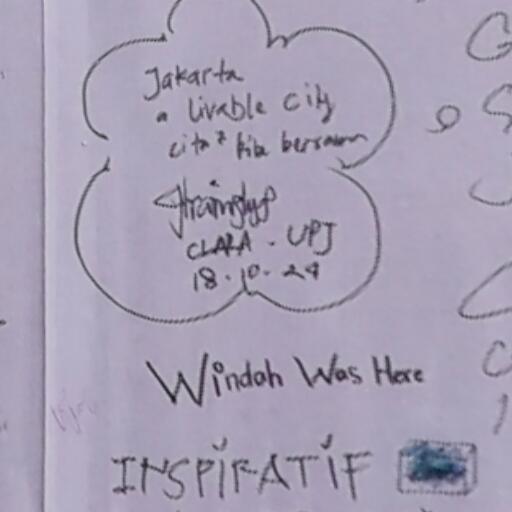 Jakarta
a livable city
cita² kita bersama
CLARA - UPJ
18.10.24
Windah Was Here
INSPIRATIF